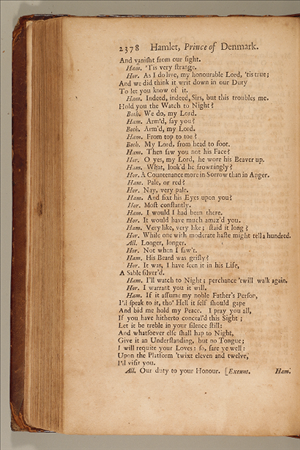 2378 Hamlet, Prince of Denmark.
And vanisht from our sight.
Ham. 'Tis very strange.
Hor. As I do live, my honourable Lord, 'tis true;
And we did think it writ down in our Duty
To let you know of it.
Ham. Indeed, indeed, Sirs, but this troubles me.
Hold you the Watch to Night?
Both. We do, my Lord.
Ham. Arm'd, say you?
Both. Arm'd, my Lord.
Ham. From top to toe?
Both. My Lord, from head to foot.
Ham. Then saw you not his Face?
Hor. O yes, my Lord, he wore his Beaver up.
Ham. What, look'd he frowningly?
Hor. A Countenance more in Sorrow than in Anger.
Ham. Pale, or red?
Hor. Nay, very pale.
Ham. And fixt his Eyes upon you?
Hor. Most constantly.
Ham. I would I had been there.
Hor. It would have much amaz'd you.
Ham. Very like, very like; staid it long?
Hor. While one with moderate haste might tell a hundred.
All. Longer, longer.
Hor. Not when I saw't.
Ham. His Beard was grisly?
Hor. It was, I have seen it in his Life,
A Sable silver'd.
Ham. I'll watch to Night; perchance 'twill walk again.
Hor. I warrant you it will.
Ham. If it assume my noble Father's Person,
I'll speak to it, tho' Hell it self should gape
And bid me hold my Peace. I pray you all,
If you have hitherto conceal'd this Sight;
Let it be treble in your silence still:
And whatsoever else shall hap to Night,
Give it an Understanding, but no Tongue;
I will requite your Loves: so, fare ye well:
Upon the Platform 'twixt eleven and twelve,
I'll visit you.
All. Our duty to your Honour. [Exeunt.
Ham.